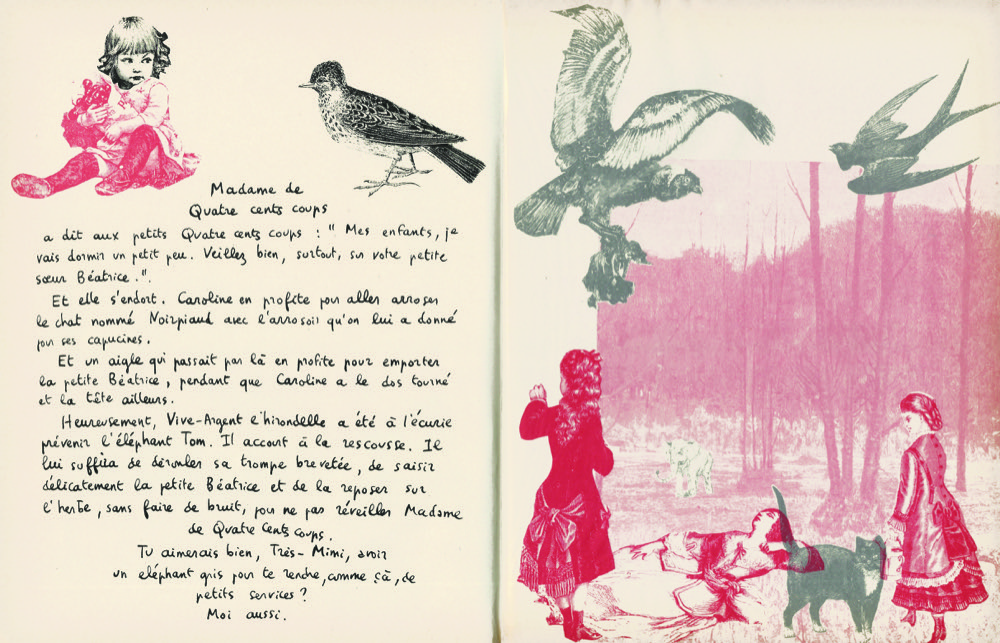 Madame de
Quatre cents coups
a dit aux petits Quatre cents coups : " Mes enfants, je
vais dormir un petit peu. Veillez bien, surtout, sur votre petite
sœur Béatrice.".
Et elle s'endort. Caroline en profite pour aller arroser
le chat nommé Noirpiaud avec l'arrosoir qu'on lui a donné
pour ses capucines.
Et un aigle qui passait par là en profite pour emporter
la petite Béatrice, pendant que Caroline a le dos tourné
et la tête ailleurs.
Heureusement, Vive-Argent l'hirondelle a été à l'écurie
prévenir l'éléphant Tom. Il accourt à la rescousse. Il
lui suffira de dérouler sa trompe brevetée, de saisir
délicatement la petite Béatrice et de la reposer sur
l'herbe, sans faire de bruit, pour ne pas réveiller Madame
de Quatre Cents Coups.
Tu aimerais bien, Très-Mimi, avoir
un eléphant gris pour te rendre, comme çà, de
petits services ?
Moi aussi.